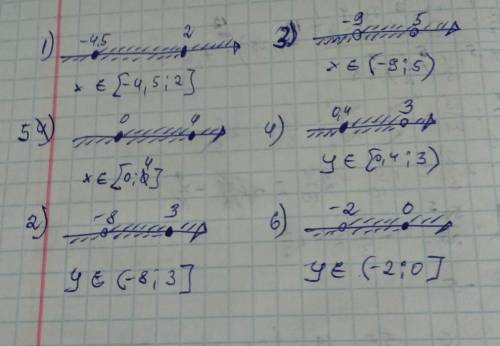 1) -4,5 2
x ∈ [-4,5; 2]
3) -9 5
x ∈ (-9; 5)
5) 0 4
x ∈ [0; 4]
4) 0,4 3
y ∈ [0,4; 3)
2) -8 3
y ∈ (-8; 3]
6) -2 0
y ∈ (-2; 0]